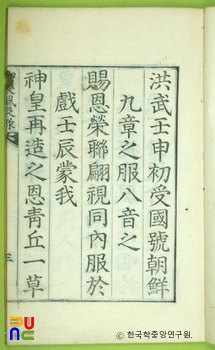 洪武壬申初受國號朝鮮
九章之服八音之
賜恩榮聯翩視同內服於
戲壬辰蒙我
神皇再造之恩青丘一草
三
한국학중앙연구원